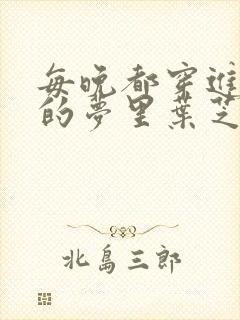 每晚都穿進
的夢里葉芝
北島三郎